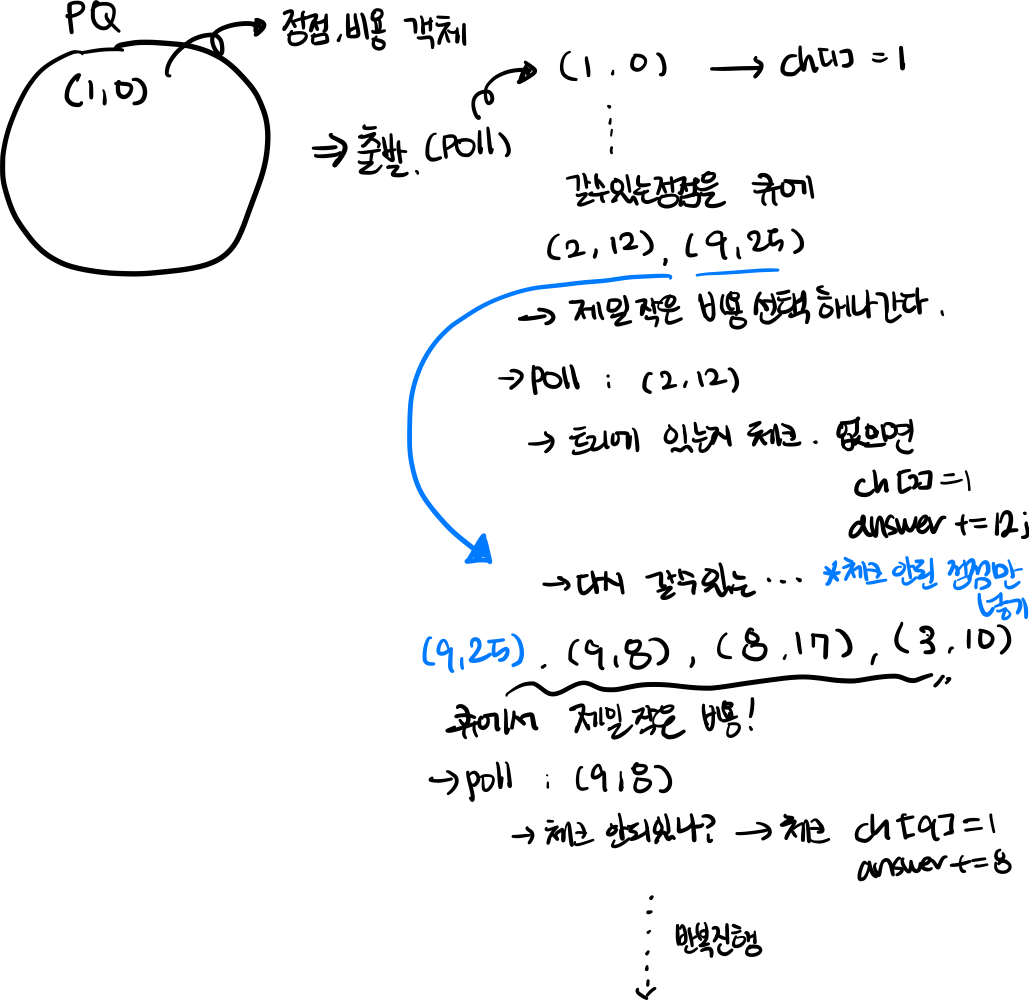 PQ
(1,0)
정점,비용 객체
⇒ 출발. (Poll)
(1,0) → ch[1] = 1
갈수있는정점을 큐에
(2,12), (9,25)
→ 제일 작은 비용 선택해나간다.
→ Poll : (2,12)
→ 트리에 있는지 체크. 없으면
ch[2]=1
answer += 12;
→ 다시 갈수있는 ...
*체크 안된 정점만
넣기
(9,25), (9,8), (8,17), (3,10)
큐에서 제일 작은 비용!
→ poll : (9,8)
→ 체크 안되있나? → 체크 ch[9]=1
answer += 8
반복진행